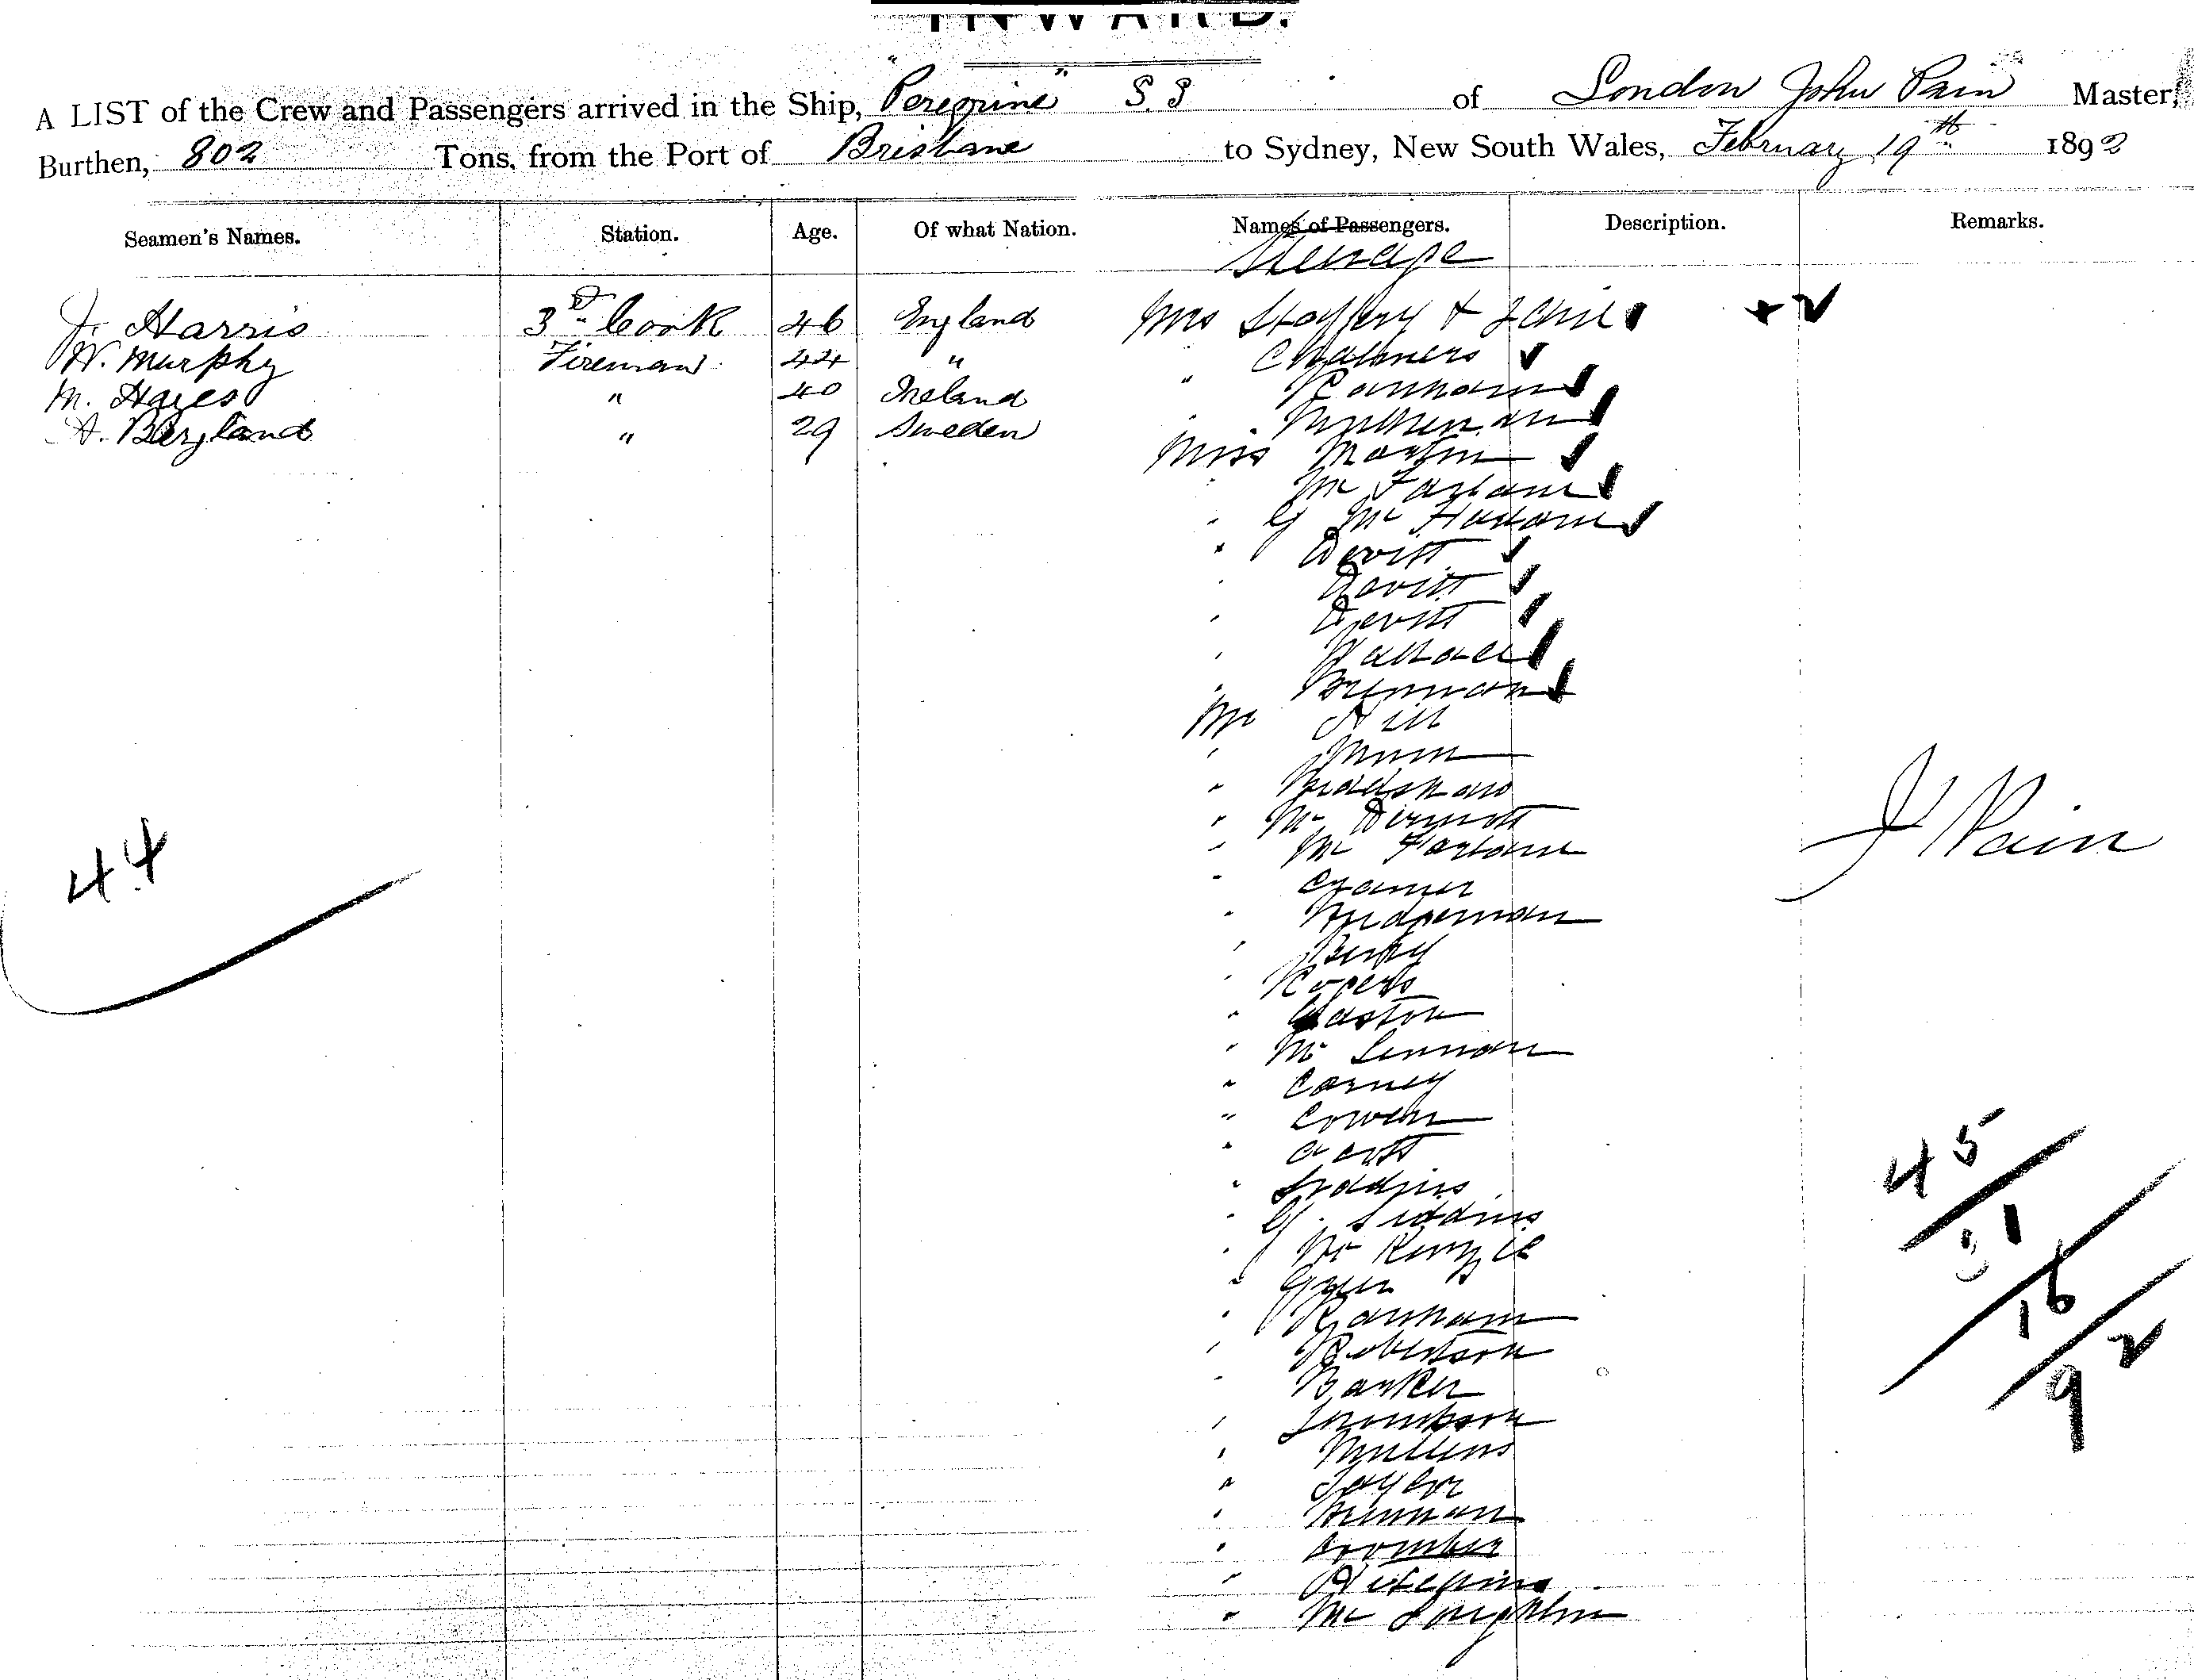 INWARD.
A LIST of the Crew and Passengers arrived in the Ship, "Peregrine" S.S of London John Pain Master,
Burthen, 802 Tons, from the Port of Brisbane to Sydney, New South Wales, February 19th 1892
Seamen's Names. Station. Age. Of what Nation. Names of Passengers. Description. Remarks.
Steerage
J. Harris 3rd Cook 46 England Mrs &
W. Murphy Fireman 44 " Chalmers
M. Hayes " 40 Ireland " Ranham
A. Bergland " 29 Sweden "
Miss Martin
McFarlane
" G McFarlane
" Devitt
" Devitt
" Devitt
" Wallace
" Brennan
Mr Hill
" Munn
" Bradshaw
" McDermott
" McFarlane
" Cramer
" Bridgeman
"
" Rogers
" Gaston
" McLennan
" Carney
" Cowen
" Scott
" Siddins
" G. Siddins
" McKenzie
"
" Ranham
" Robertson
" Barker
" Thompson
" Mullens
" Taylor
" Brennan
"
"
" McLoughlin
44
J Pain
45
31
16
92